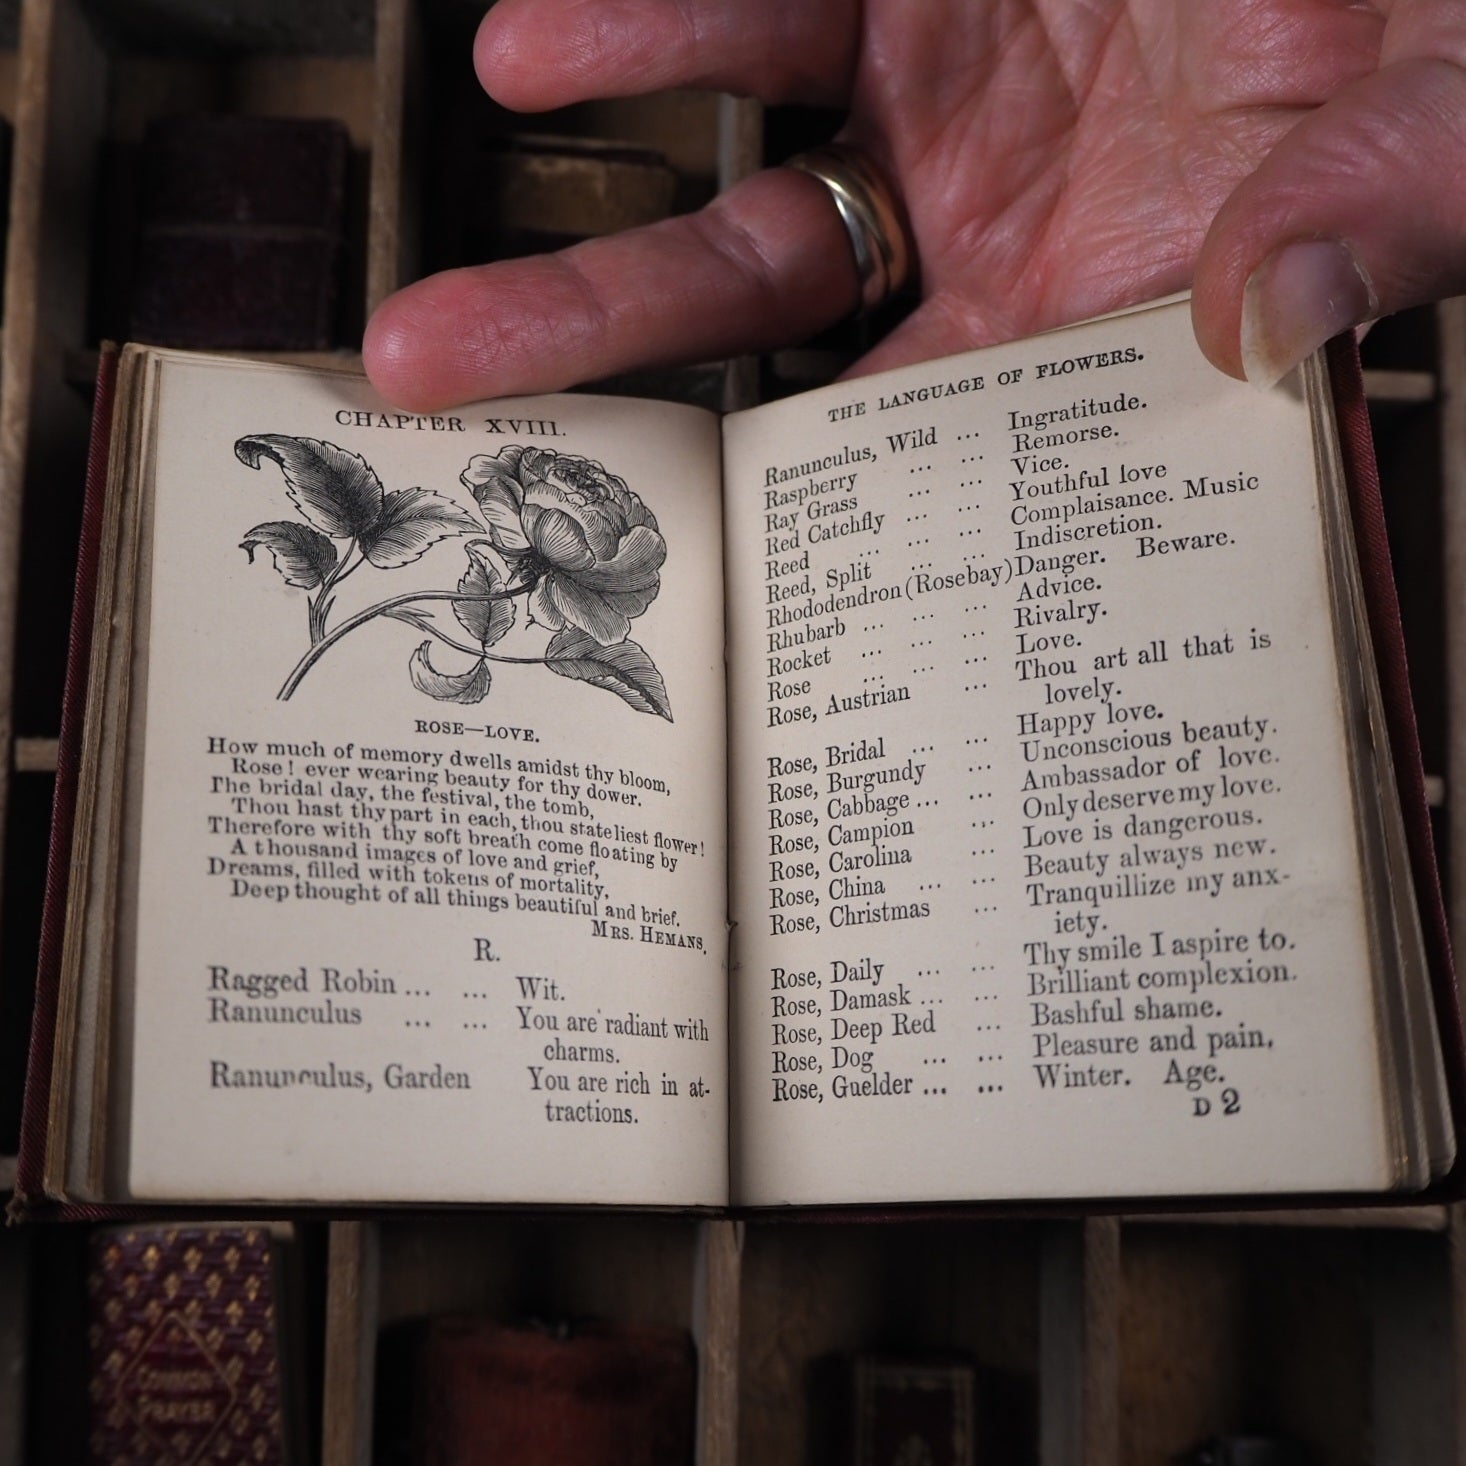 CHAPTER XVIII.
ROSE—LOVE.
How much of memory dwells amidst thy bloom,
Rose! ever wearing beauty for thy dower.
The bridal day, the festival, the tomb,
Thou hast thy part in each, thou stateliest flower!
Therefore with thy soft breath come floating by
A thousand images of love and grief,
Dreams, filled with tokens of mortality,
Deep thought of all things beautiful and brief.
MRS. HEMANS.
R.
Ragged Robin ... ... Wit.
Ranunculus ... ... You are radiant with
charms.
Ranunculus, Garden You are rich in at-
tractions.
THE LANGUAGE OF FLOWERS.
Ranunculus, Wild ... Ingratitude.
Raspberry ... ... Remorse.
Ray Grass ... ... Vice.
Red Catchfly ... ... Youthful love
Reed ... ... ... Complaisance. Music
Reed, Split ... ... Indiscretion.
Rhododendron (Rosebay) Danger. Beware.
Rhubarb ... ... ... Advice.
Rocket ... ... ... Rivalry.
Rose ... ... ... Love.
Rose, Austrian ... Thou art all that is
lovely.
Rose, Bridal ... ... Happy love.
Rose, Burgundy ... Unconscious beauty.
Rose, Cabbage ... ... Ambassador of love.
Rose, Campion ... Only deserve my love.
Rose, Carolina ... Love is dangerous.
Rose, China ... ... Beauty always new.
Rose, Christmas ... Tranquillize my anx-
iety.
Rose, Daily ... ... Thy smile I aspire to.
Rose, Damask ... ... Brilliant complexion.
Rose, Deep Red ... Bashful shame.
Rose, Dog ... ... Pleasure and pain.
Rose, Guelder ... ... Winter. Age.
D 2
COMMON
PRAYER